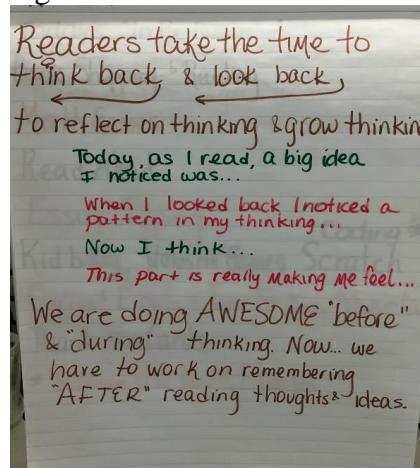 Readers take the time to
think back & look back
to reflect on thinking & grow thinkin
Today, as I read, a big idea
I noticed was...
When I looked back, I noticed a
pattern in my thinking...
Now I think...
This part is really making me feel...
We are doing AWESOME "before"
& "during" thinking. Now... we
have to work on remembering
"AFTER" reading thoughts & ideas.